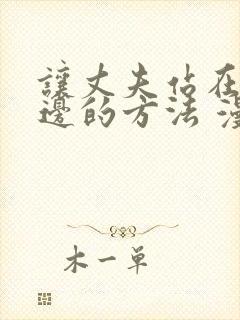 讓丈夫佔在
邊的方法 漫
木一單